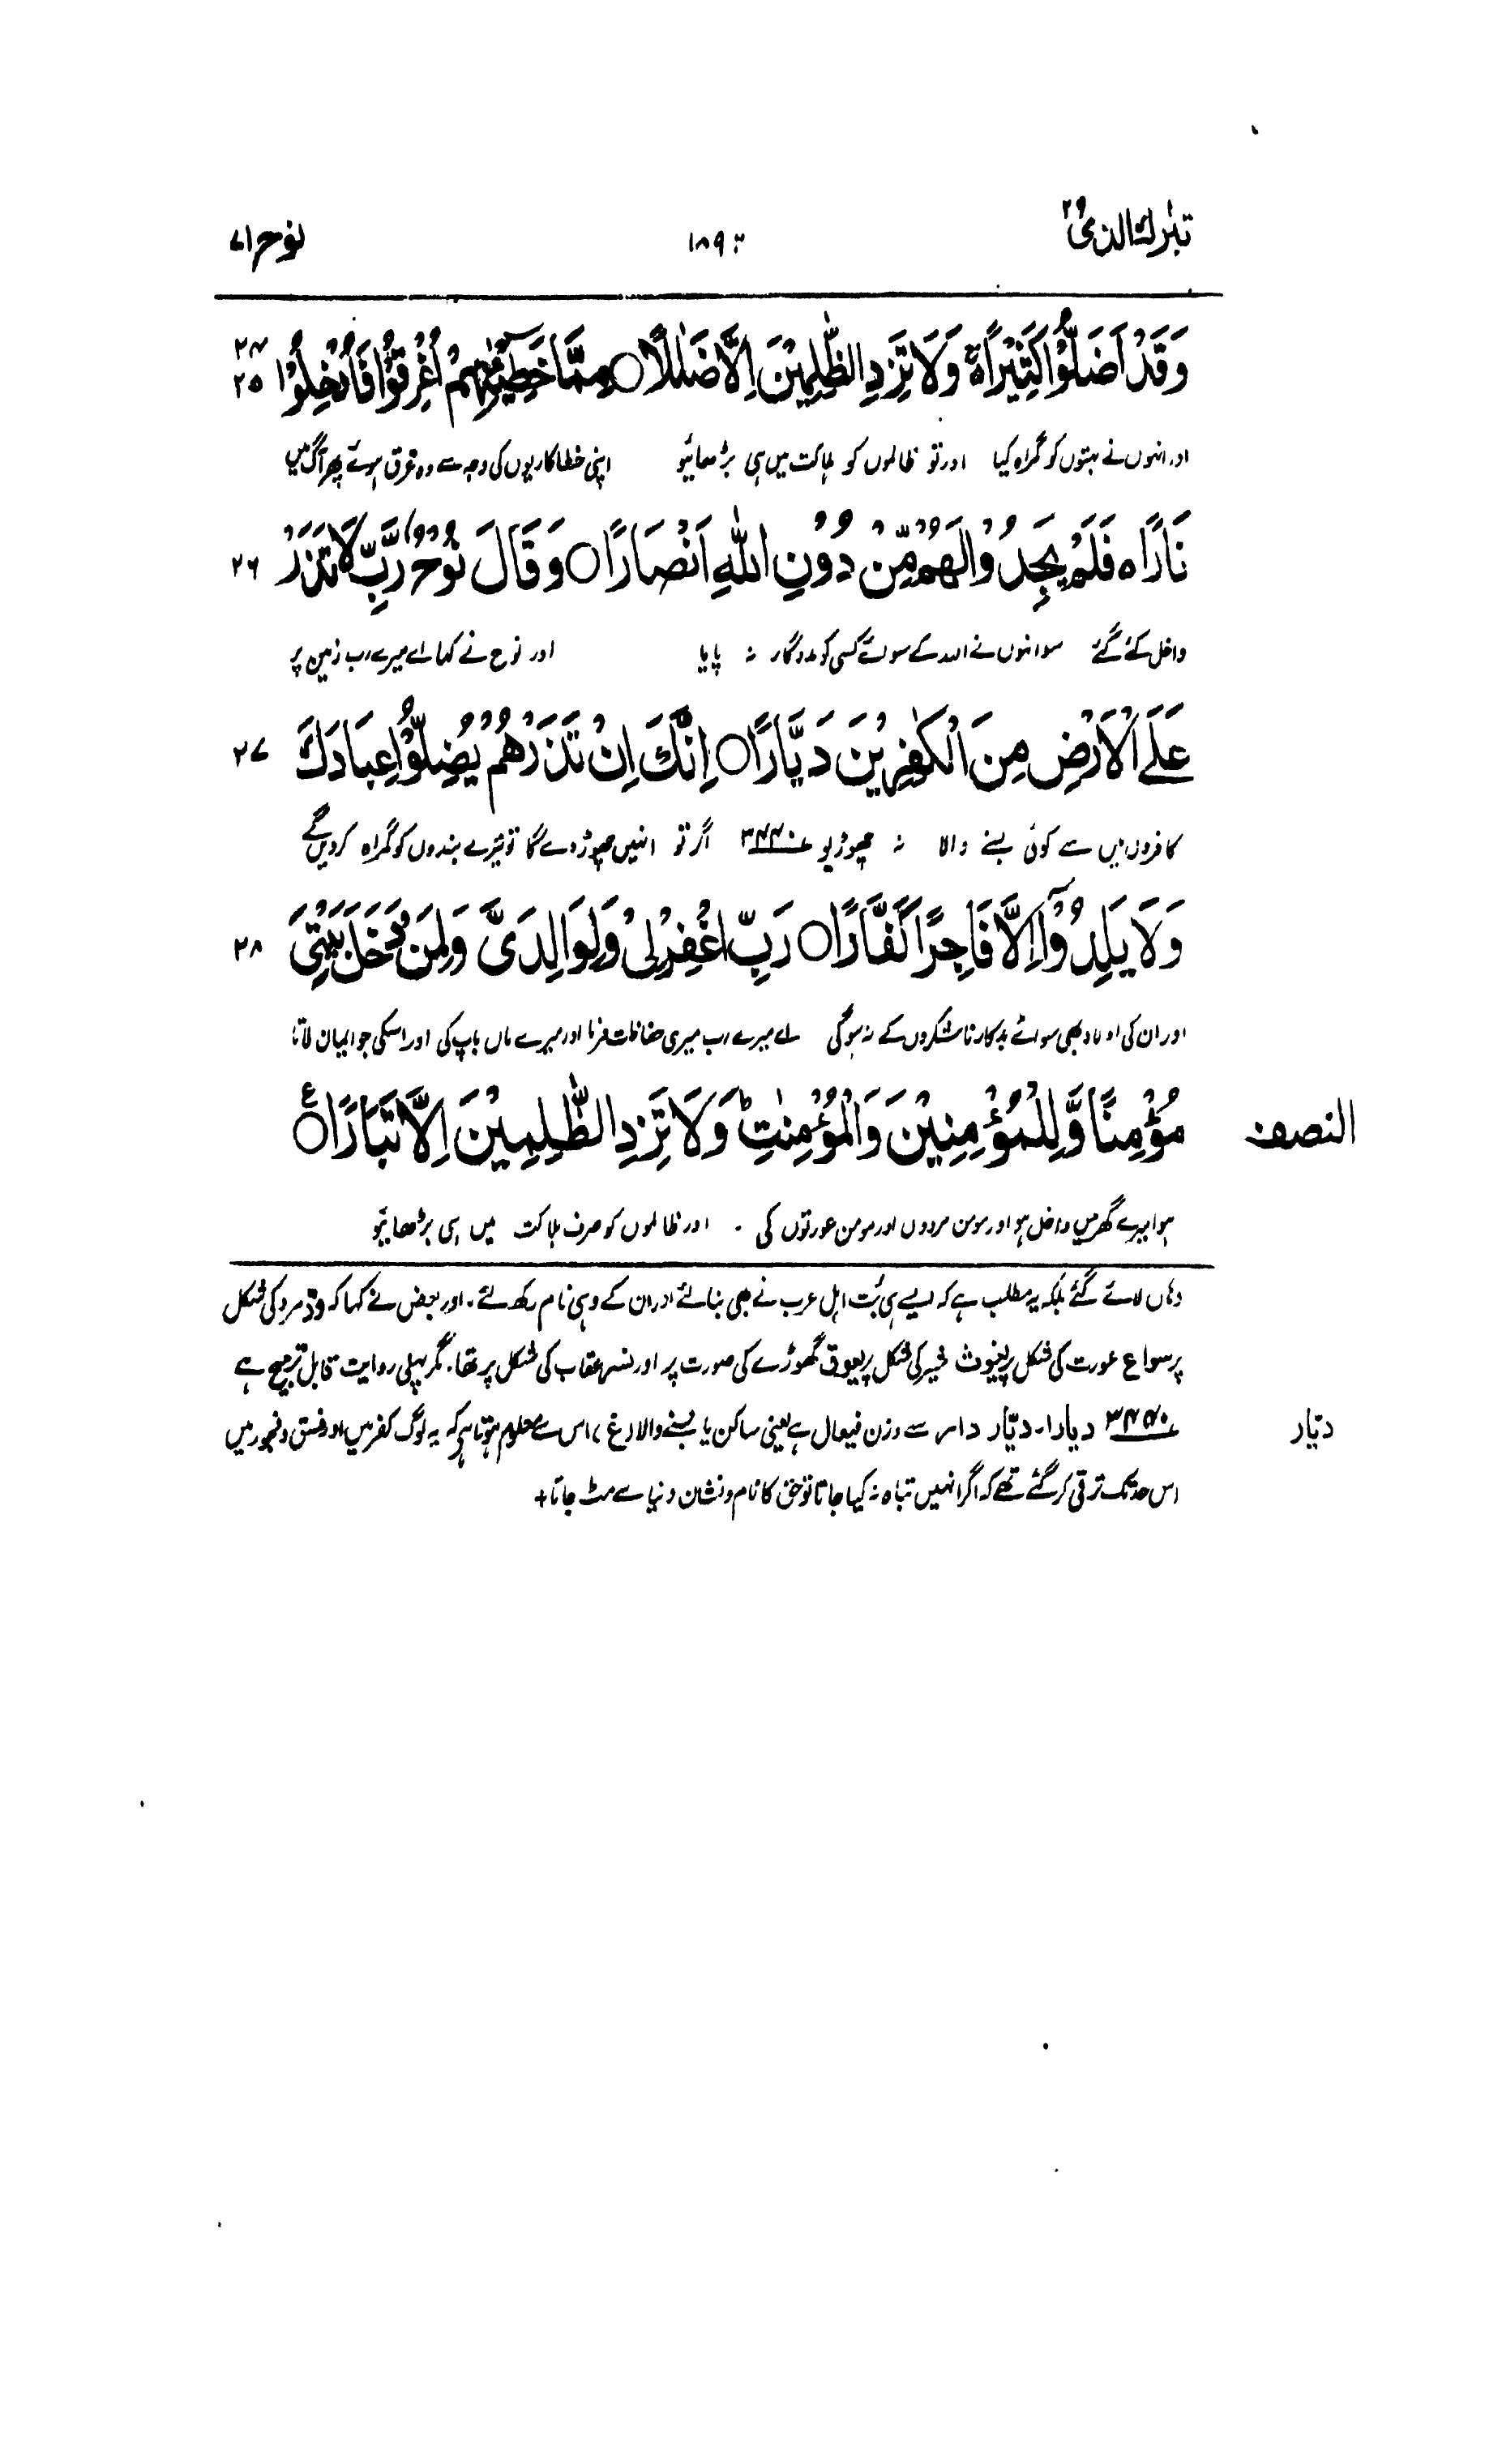 تبٰرک الذی ۲۹ ۱۸۹۳ نوح ۷۱
وَقَدْ اَضَلُّوْا كَثِيْرًا ەۚ وَلَا تَزِدِ الظّٰلِمِيْنَ اِلَّا ضَلٰلًا ○ مِمَّا خَطِيْٓـٰٔتِهِمْ اُغْرِقُوْا فَاُدْخِلُوْا ۲۴ ۲۵
اور انہوں نے بہتوں کو گمراہ کیا اور تو ظالموں کو ہلاکت میں ہی بڑھائیو اپنی خطاکاریوں کی وجہ سے وہ غرق ہوئے پھر آگ میں
نَارًا ە فَلَمْ يَجِدُوْا لَهُمْ مِّنْ دُوْنِ اللّٰهِ اَنْصَارًا ○ وَقَالَ نُوْحٌ رَّبِّ لَا تَذَرْ ۲۶
داخل کئے گئے سو انہوں نے اللہ کے سوائے کسی کو مددگار نہ پایا اور نوح نے کہا اے میرے رب زمین پر
عَلَى الْاَرْضِ مِنَ الْكٰفِرِيْنَ دَيَّارًا ○ اِنَّكَ اِنْ تَذَرْهُمْ يُضِلُّوْا عِبَادَكَ ۲۷
کافروں میں سے کوئی بسنے والا نہ چھوڑیو ۳۴۴۰ اگر تو انہیں چھوڑ دے گا تو تیرے بندوں کو گمراہ کردیں گے
وَلَا يَلِدُوْٓا اِلَّا فَاجِرًا كَفَّارًا ○ رَبِّ اغْفِرْ لِيْ وَلِوَالِدَيَّ وَلِمَنْ دَخَلَ بَيْتِيَ ۲۸
اور ان کی اولاد بھی سوائے بدکار ناشکروں کے نہ ہوگی اے میرے رب میری حفاظت فرما اور میرے ماں باپ کی اور اسکی جو ایمان لاتا
مُؤْمِنًا وَّلِلْمُؤْمِنِيْنَ وَالْمُؤْمِنٰتِ ؕ وَلَا تَزِدِ الظّٰلِمِيْنَ اِلَّا تَبَارًا ○ ع النصف
ہوا میرے گھر میں داخل ہو اور مومن مردوں اور مومن عورتوں کی ۔ اور ظالموں کو صرف ہلاکت میں ہی بڑھائیو
وہاں لائے گئے بلکہ یہ مطلب ہے کہ ایسے ہی بُت اہل عرب نے بھی بنالئے اور ان کے وہی نام رکھ لئے۔ اور بعض نے کہا کہ ودّ مرد کی شکل
پر سواع عورت کی شکل پر یغوث شیر کی شکل پر یعوق گھوڑے کی صورت پر اور نسر عقاب کی شکل پر تھا۔ مگر پہلی روایت قابل ترجیح ہے
۳۴۴۰ دیارا۔ دیّار دار سے وزن فیعال ہے یعنی ساکن یا بسنے والا (غ) اس سے معلوم ہوتا ہے کہ یہ لوگ کفر میں اور فسق و فجور میں دیّار
اس حد تک ترقی کر گئے تھے کہ اگر انہیں تباہ نہ کیا جاتا تو حق کا نام و نشان دنیا سے مٹ جاتا +